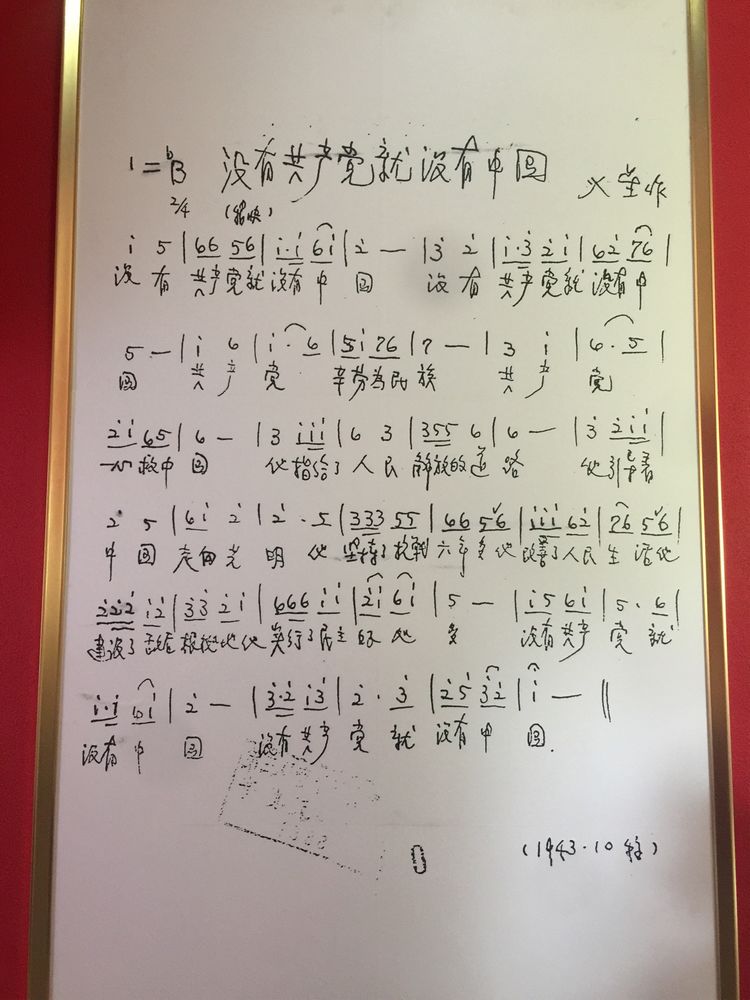 1=ᵇB 没有共产党就没有中国 火星作
2/4 (稍快)
i 5 | 66 56 | i·i 6i | 2̇ — | 3̇ 2̇ | i·3̇ 2̇i | 62̇ 76 |
没有 共产党就没有中国 没有 共产党就没有中
5 — | i 6 | i·6 | 5i 76 | 7 — | 3 i | 6·5 |
国 共产党 辛劳为民族 共产党
2̇i 65 | 6 — | 3 iii | 6 3 | 355 6 | 6 — | 3̇ 2̇ii |
一心救中国 他指给了人民解放的道路 他引导着
2̇ 5 | 6i 2̇ | 2̇·5 | 333 55 | 66 56 | iii 62̇ | 76 56 |
中国走向光明 他坚持了抗战六年多他改善了人民生活他
2̇2̇2̇ i2̇ | 3̇3̇ 2̇i | 666 ii | 2̇i 6i | 5 — | i5 6i | 5·6 |
建设了敌后根据地他实行了民主好处多 没有共产党就
i·i 6i | 2̇ — | 3̇·2̇ i3̇ | 2̇·3̇ | 2̇5 3̇2̇ | i — ‖
没有中国 没有共产党就没有中国.
(1943.10 )